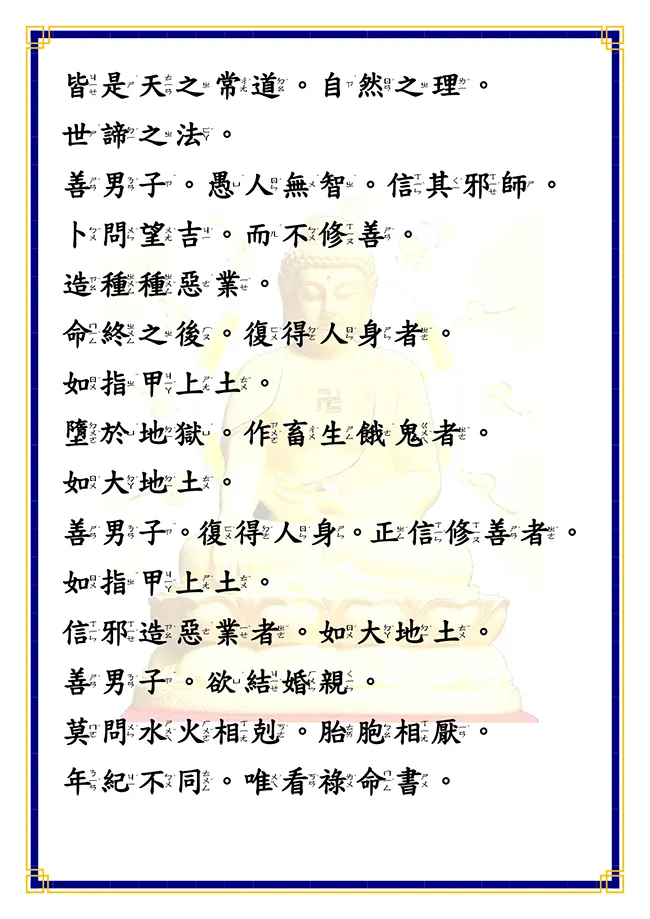 皆是天之常道。自然之理。
世諦之法。
善男子。愚人無智。信其邪師。
卜問望吉。而不修善。
造種種惡業。
命終之後。復得人身者。
如指甲上土。
墮於地獄。作畜生餓鬼者。
如大地土。
善男子。復得人身。正信修善者。
如指甲上土。
信邪造惡業者。如大地土。
善男子。欲結婚親。
莫問水火相剋。胎胞相厭。
年紀不同。唯看祿命書。